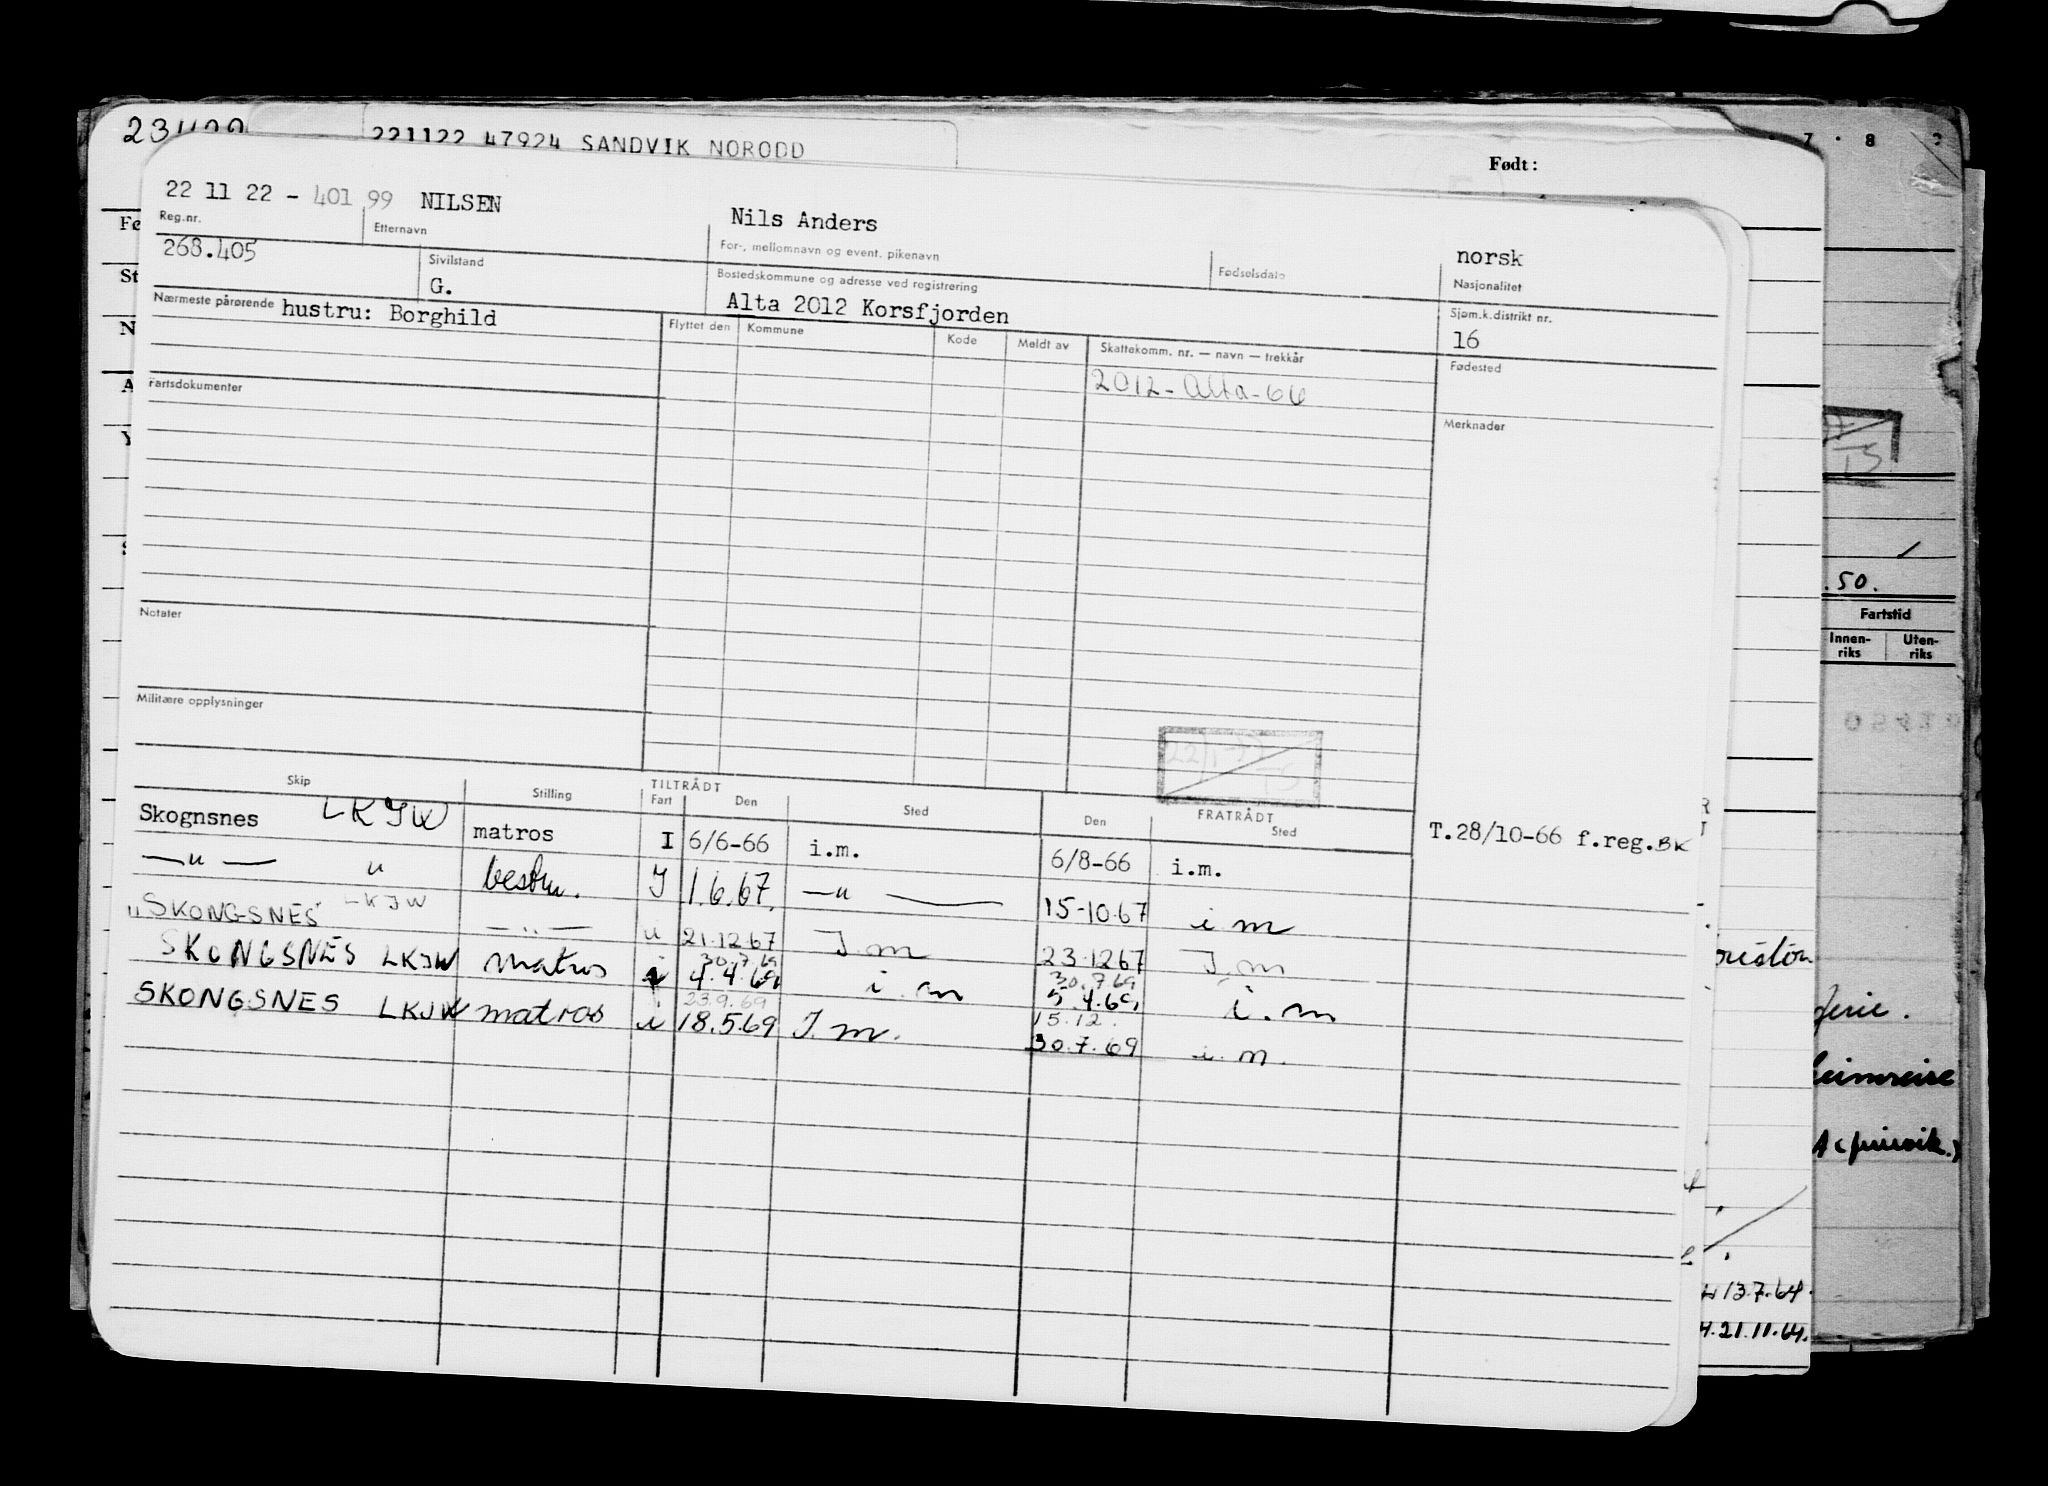 221122 47924 SANDVIK NORODD
7 · 8
Født:
22 11 22 - 401 99 NILSEN Nils Anders norsk
Reg.nr. Etternavn For-, mellomnavn og event. pikenavn Fødselsdato Nasjonalitet
268.405 Sivilstand Bostedskommune og adresse ved registrering Sjøm.k.distrikt nr.
G. Alta 2012 Korsfjorden 16
Nærmeste pårørende hustru: Borghild Flyttet den Kommune Kode Meldt av Skattekomm. nr. — navn — trekkår Fødested
2012 - Alta - 66
Fartsdokumenter Merknader
Notater
Militære opplysninger
.50.
Fartstid
Innen-riks Uten-riks
Skip Stilling TILTRÅDT Fart Den Sted FRATRÅDT Den Sted
Skognsnes LKJW matros I 6/6-66 i.m. 6/8-66 i.m. T.28/10-66 f.reg.BK
—"— " bestm. J 1.6.67. —"— 15-10.67 i m
" SKONGSNES LKJW —"— " 21.12.67 J.m 23.1267 J.m
30.7.69 30.7.69
SKONGSNES LKJW matros i 4.4.69 i.m 5.4.69 i.m
23.9.69 15.12.
SKONGSNES LKJW matros i 18.5.69 J.m. 30.7.69 i.m.
ferie.
heimreise
13.7.64.
21.11.64.